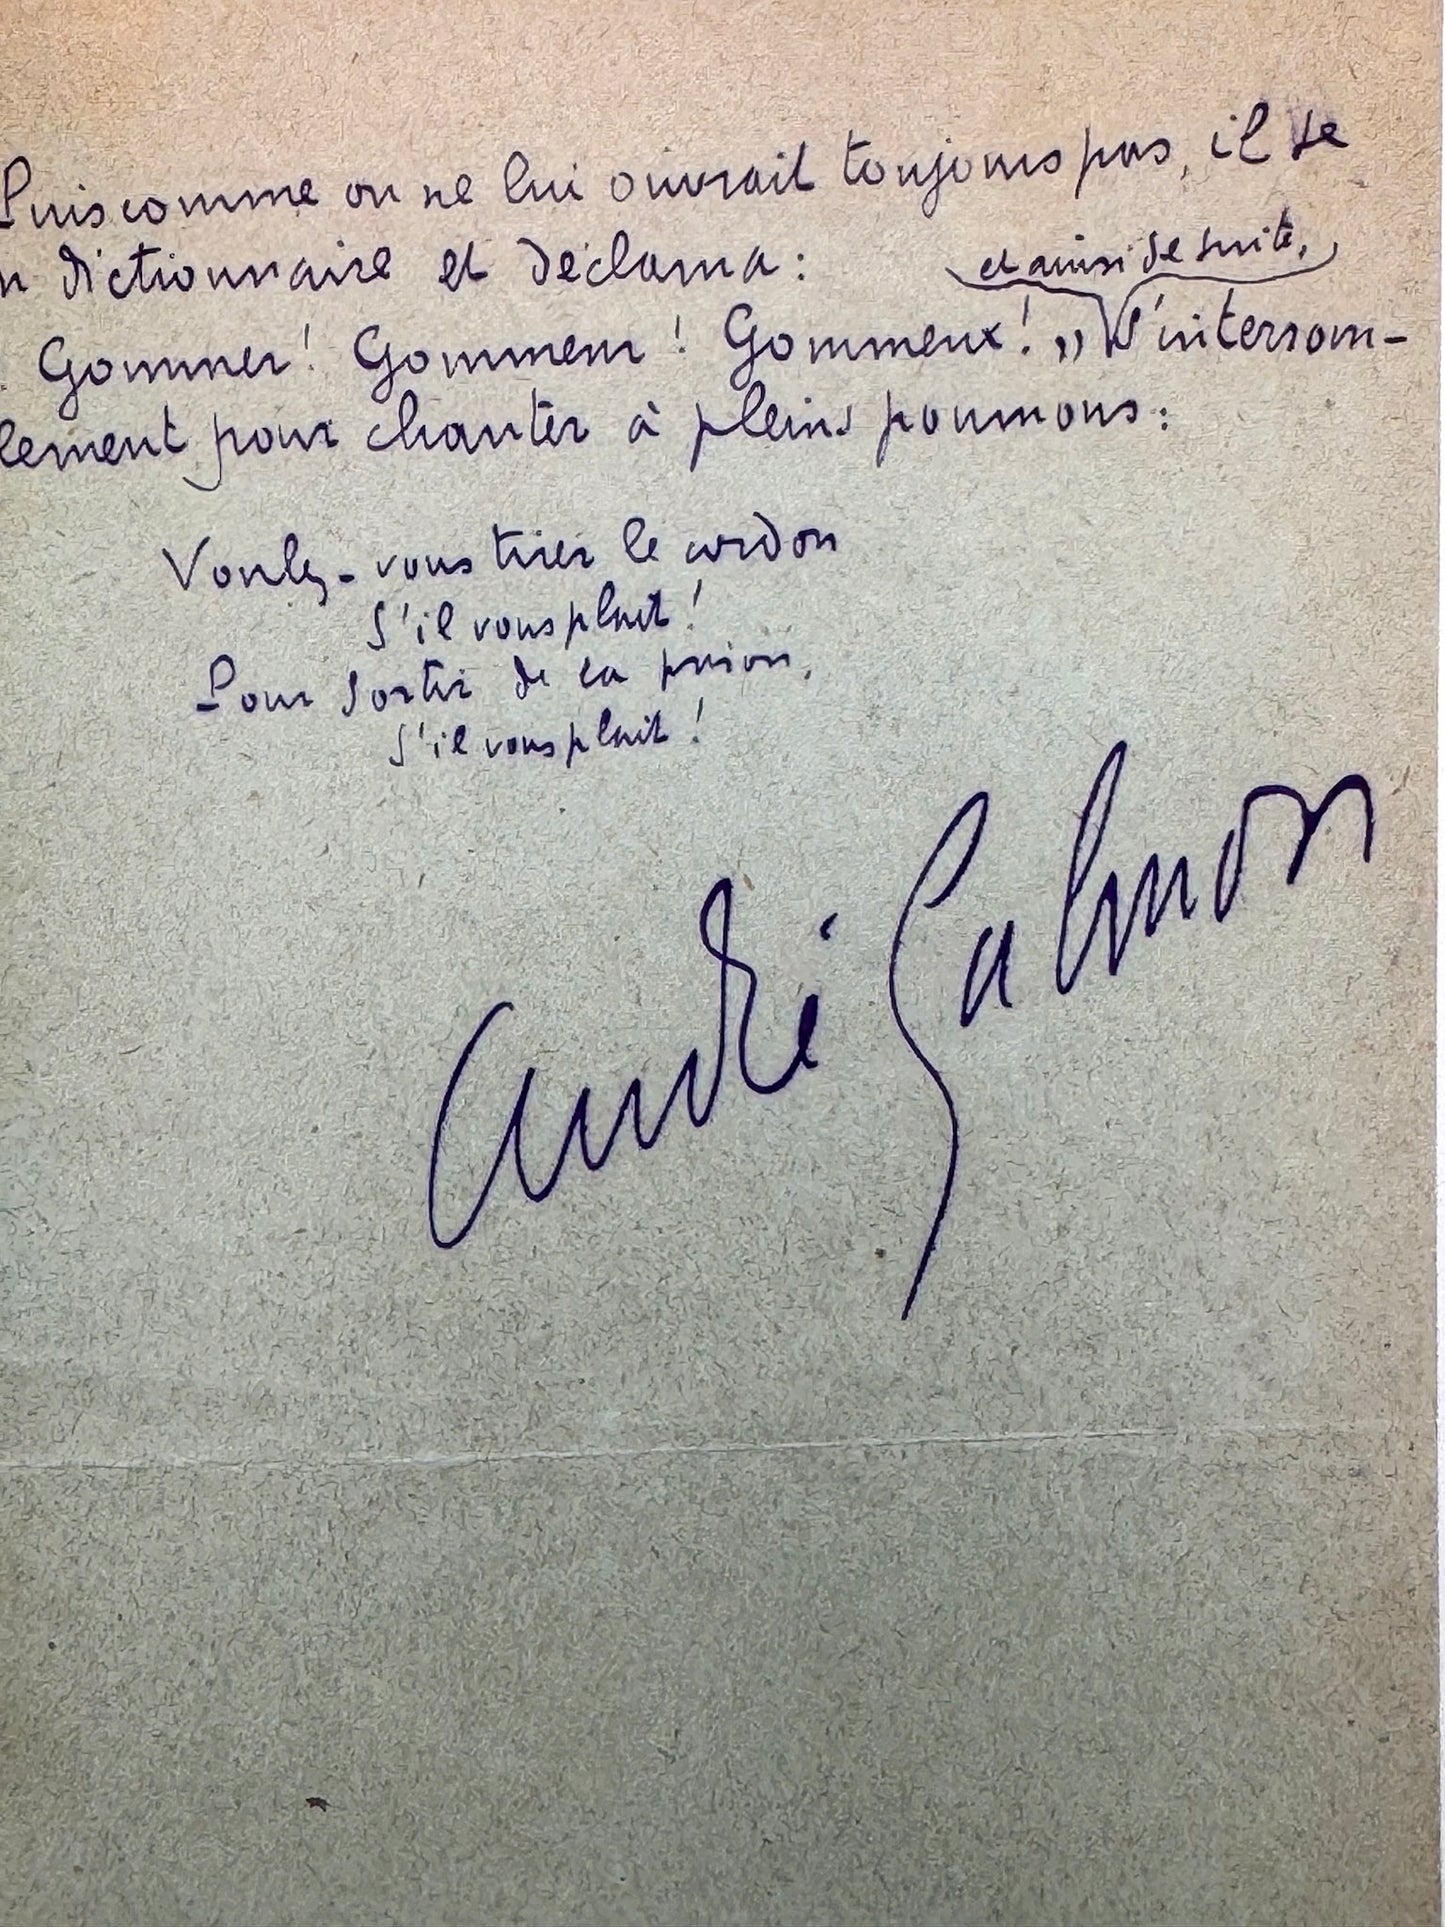 Puis comme on ne lui ouvrait toujours pas, il se
n dictionnaire et déclama:
et ainsi de suite,
Gommer! Gommeur! Gommeux! " S'interrom-
lement pour chanter à pleins poumons:
Voulez-vous tirer le cordon
S'il vous plait!
Pour sortir de la prison,
S'il vous plait!
André Salmon